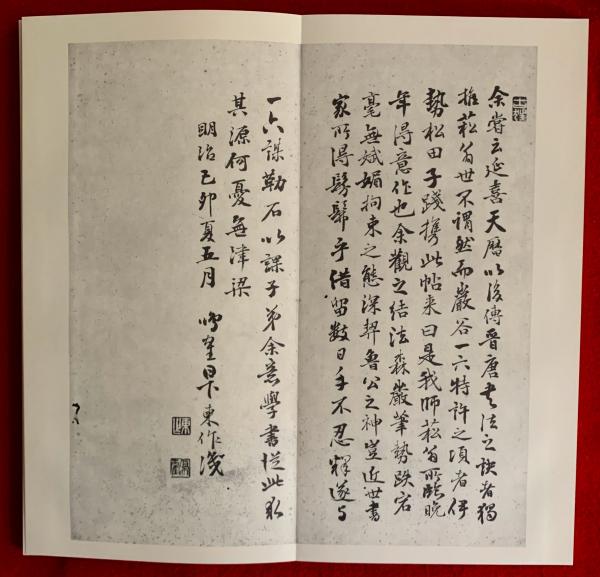 余嘗云延喜天曆以後傳晉唐書法之訣者獨
推菘翁世不謂然而巖谷一六特許之頃者伊
勢松田子踐携此帖来曰是我師菘翁所臨晚
年得意作也余觀之結法森嚴筆勢跌宕
毫無斌媚拘束之態深契魯公之神豈近世書
家所得髣髴乎借留數日手不忍釋遂与
一六謀勒石以課子弟余意學書従此取
其源何憂無津梁
明治己卯夏五月 鳴隺日下東作識